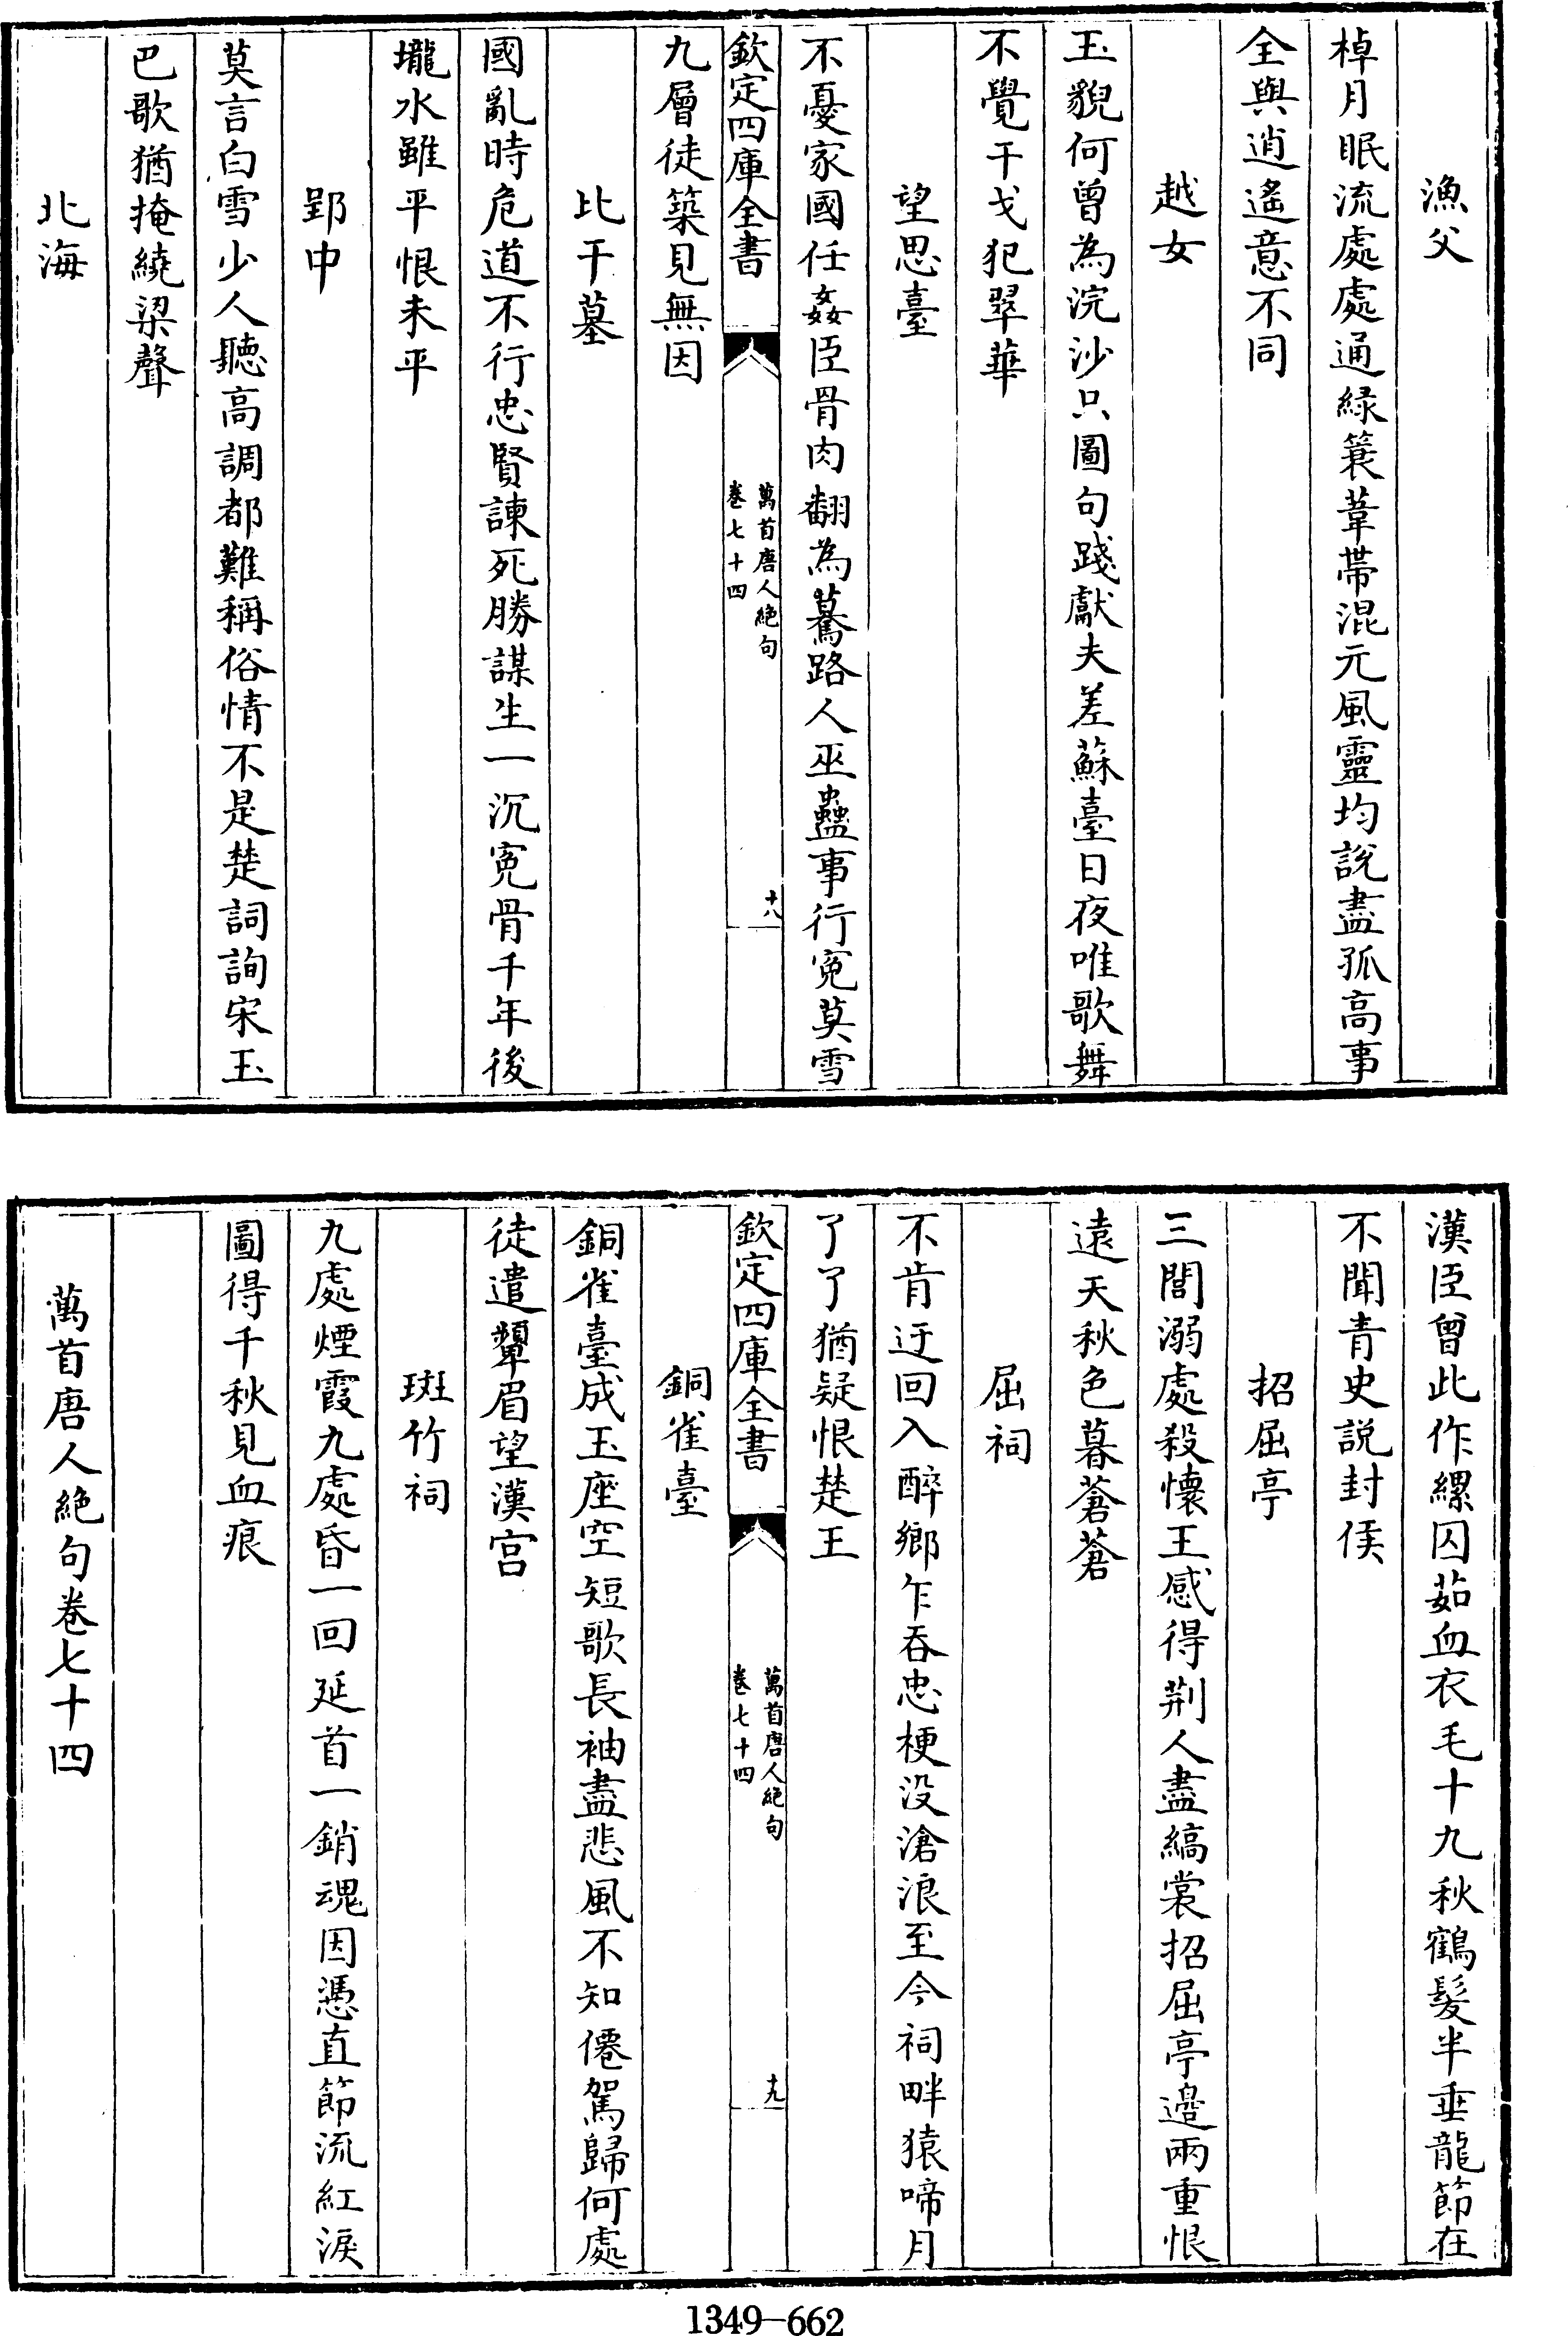 漁父
棹月眠流處處通緑簑葦帶混元風靈均説盡孤高事
全與逍遙意不同
越女
玉貌何曾為浣沙只圖句踐獻夫差蘇臺日夜唯歌舞
不覺干戈犯翠華
望思臺
不憂家國任姦臣骨肉翻為驀路人巫蠱事行寃莫雪
欽定四庫全書
萬首唐人絶句
卷七十四
十八
九層徒築見無因
比干墓
國亂時危道不行忠賢諫死勝謀生一沉寃骨千年後
壠水雖平恨未平
郢中
莫言白雪少人聽高調都難稱俗情不是楚詞詢宋玉
巴歌猶掩繞梁聲
北海
漢臣曾此作縲囚茹血衣毛十九秋鶴髮半垂龍節在
不聞青史説封侯
招屈亭
三閭溺處殺懷王感得荆人盡縞裳招屈亭邉兩重恨
遠天秋色暮蒼蒼
屈祠
不肯迂回入醉鄉乍吞忠梗沒滄浪至今祠畔猿啼月
了了猶疑恨楚王
欽定四庫全書
萬首唐人絶句
卷七十四
十九
銅雀臺
銅雀臺成玉座空短歌長袖盡悲風不知僊駕歸何處
徒遣顰眉望漢宮
斑竹祠
九處煙霞九處昏一回延首一銷魂因憑直節流紅淚
圖得千秋見血痕
萬首唐人絶句卷七十四
1349-662